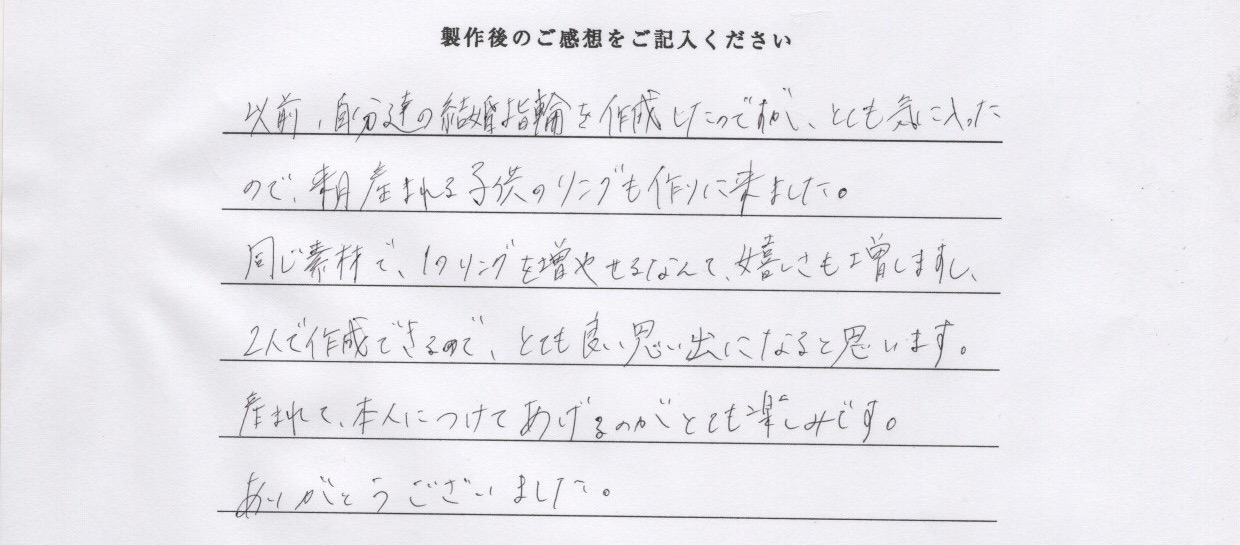 製作後のご感想をご記入ください
以前、自分達の結婚指輪を作成したのですが、とても気に入った
ので、来月産まれる子供のリングも作りに来ました。
同じ素材で、1つリングを増やせるなんて、嬉しさも増しますし、
2人で作成できるので、とても良い思い出になると思います。
産まれて、本人につけてあげるのがとても楽しみです。
ありがとうございました。